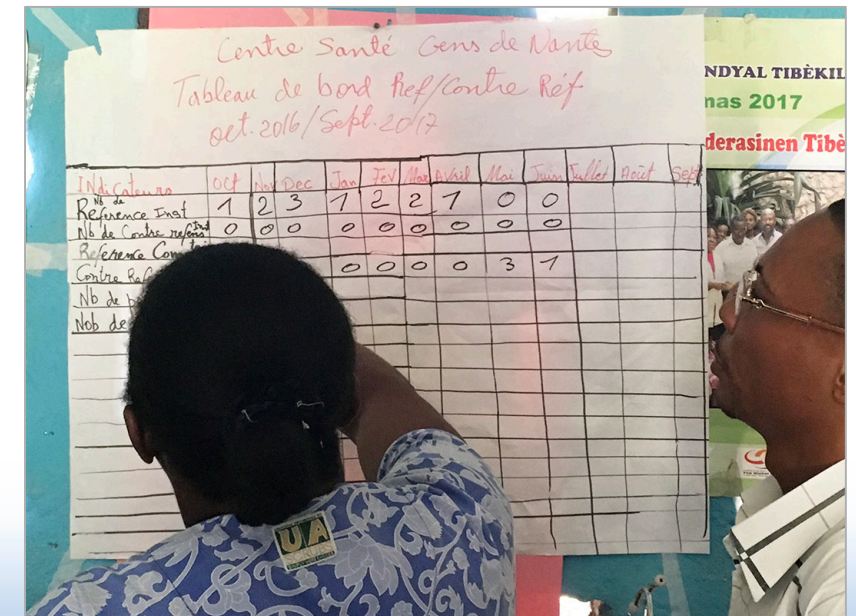 Centre Santé Gens de Nante
Tableau de bord Ref/Contre Réf
oct. 2016/Sept. 2017
Indicateurs Oct Nov Dec Jan Fev Mar Avril Mai Juin Juillet Août Sept
Nb de Reference Inst 1 2 3 1 2 2 1 0 0
Nb de Contre refers Inst 0 0 0 0 0 0 0 0 0
Reference
Contre Ref 0 0 0 0 3 1
Nb de
Nob de
NDYAL TIBÈKIL
mas 2017
derasinen Tibè
UA